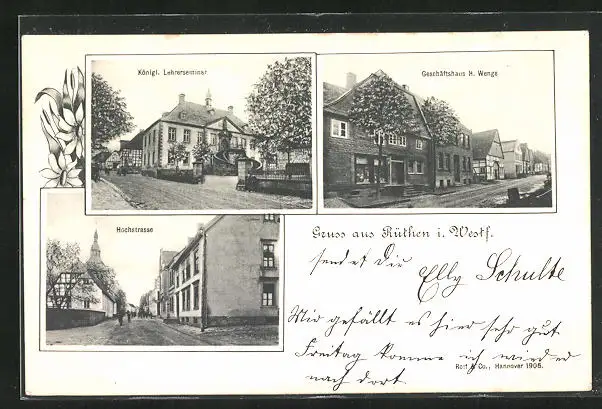 Königl. Lehrerseminar
Geschäftshaus H. Wenge
Hochstrasse
Gruss aus Rüthen i. Westf.
sendet Dir
Elly Schulte
Mir gefällt es hier sehr gut
Freitag komme ich wieder
nach dort.
Rott & Co., Hannover 1906.